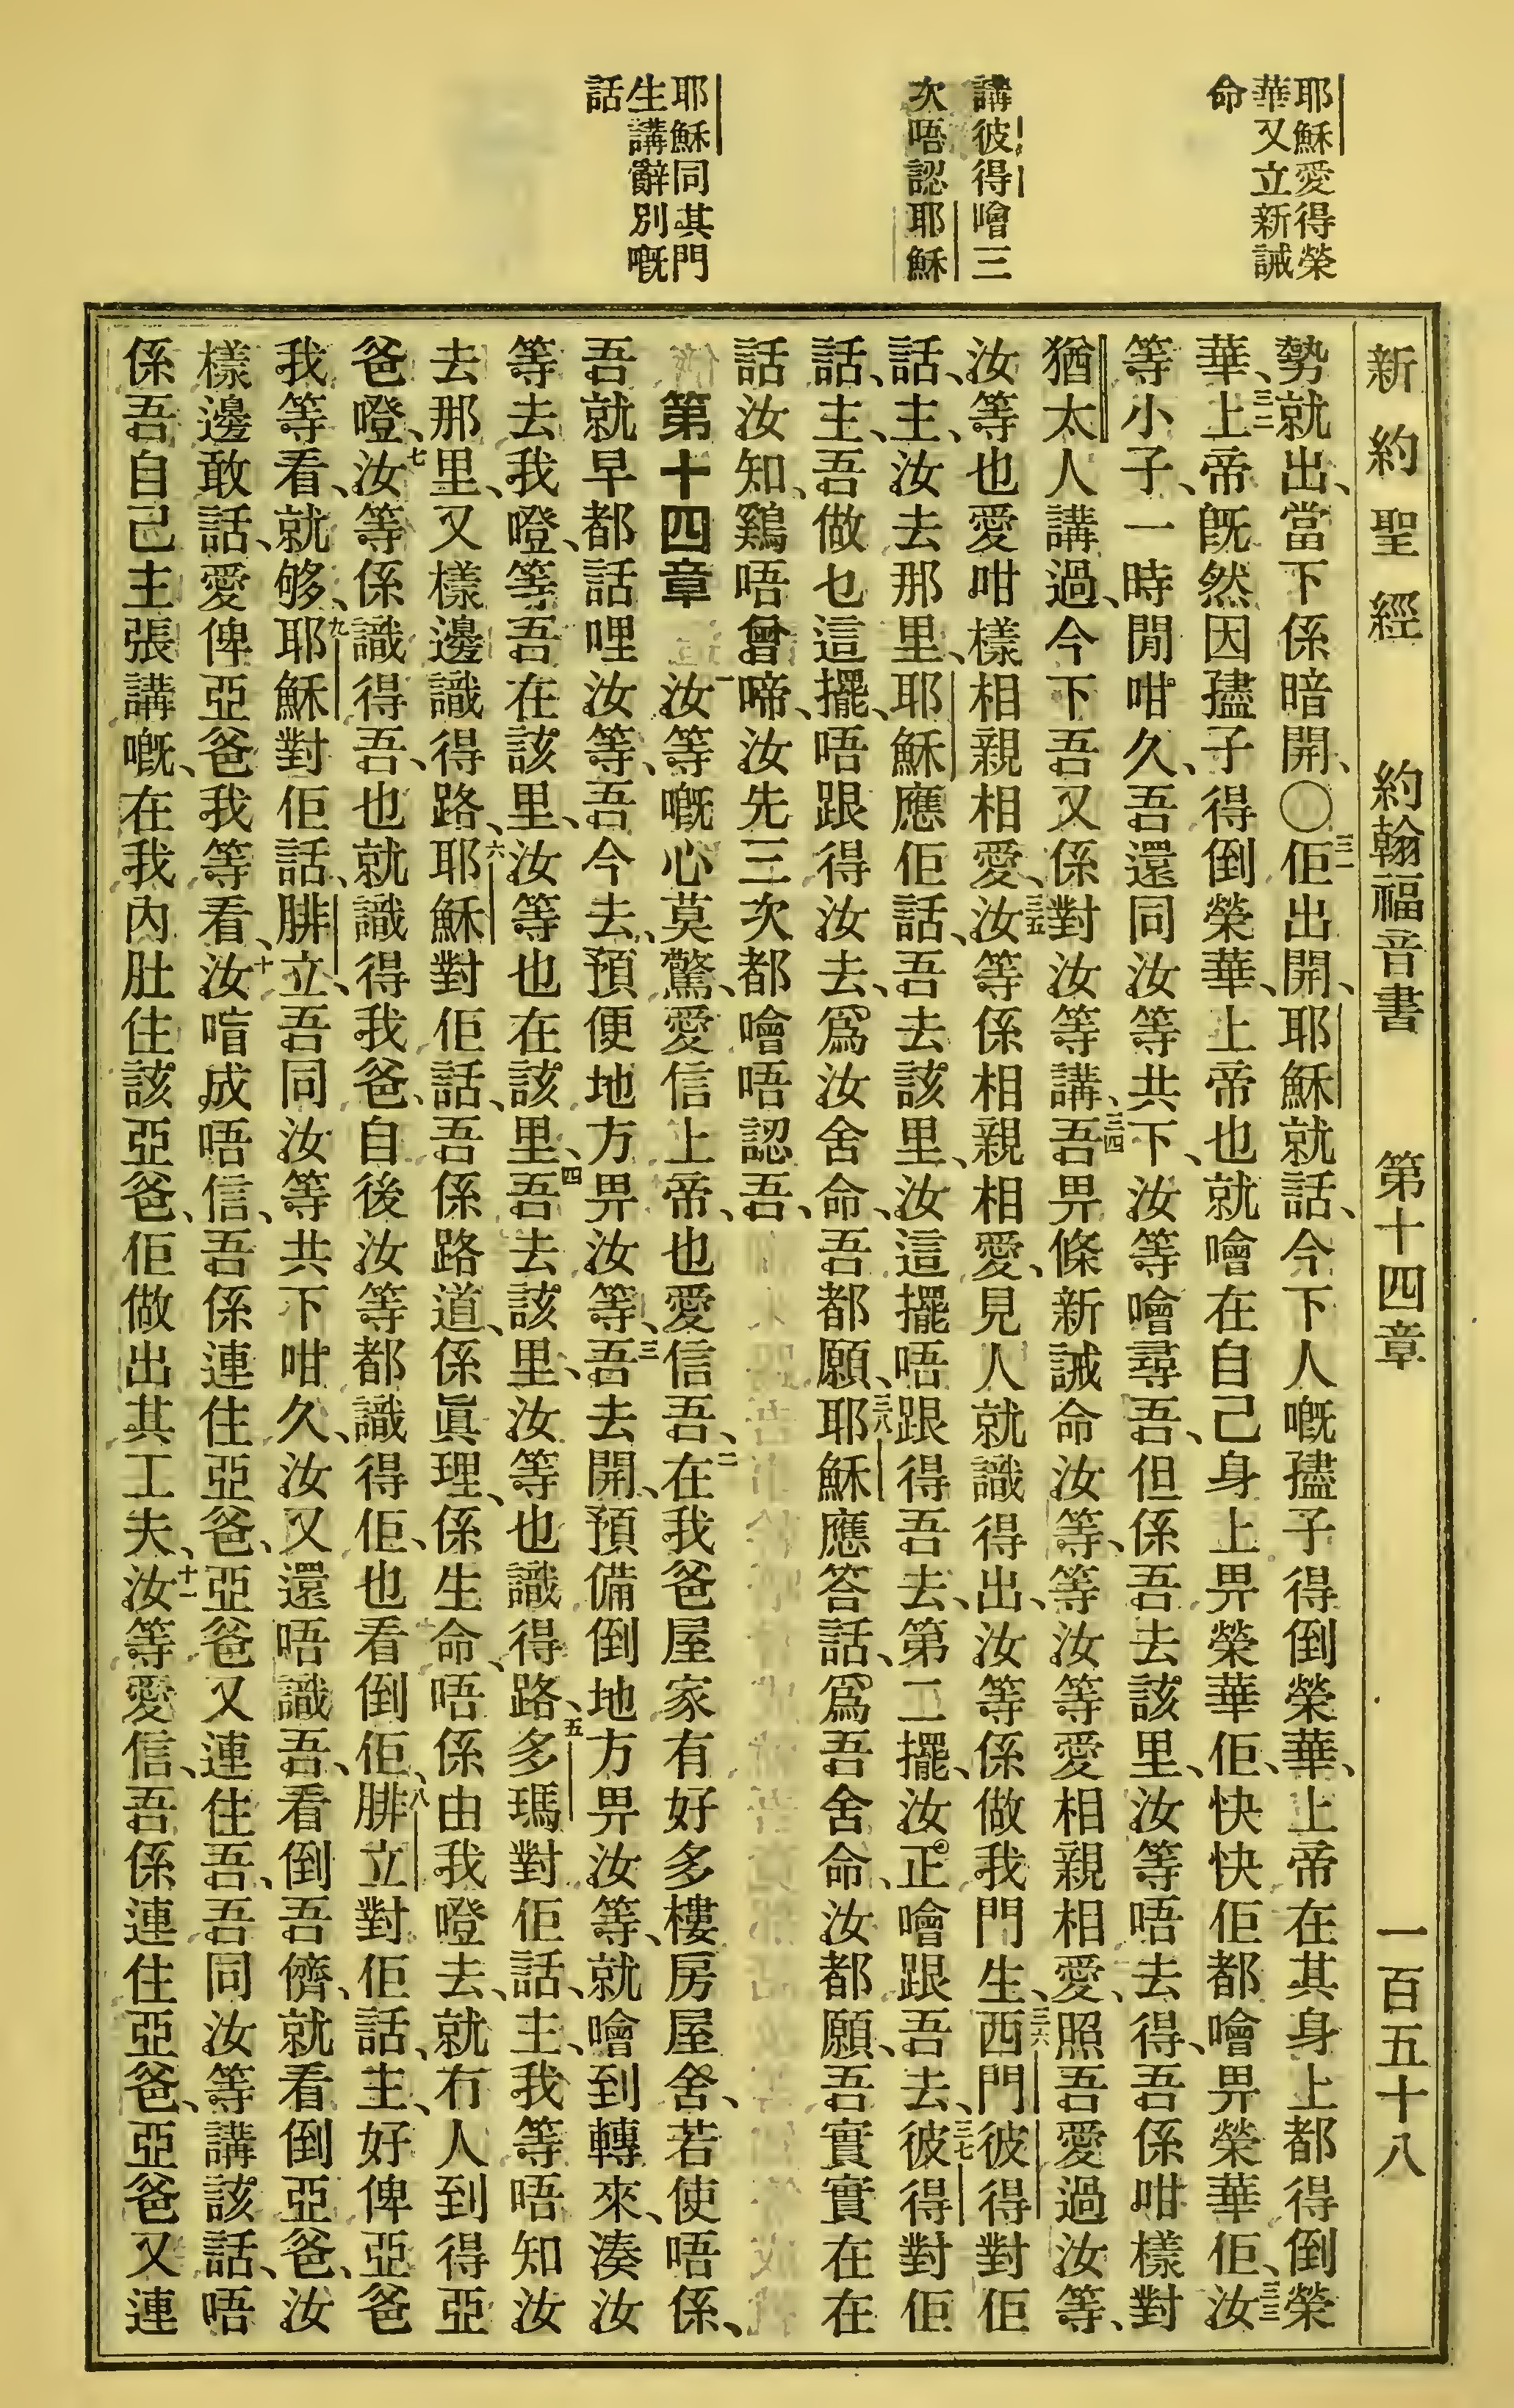 耶穌愛得榮
華又立新誡
命
講彼得噲三
次唔認耶穌
耶穌同其門
生講辭別嘅
話
新約聖經 約翰福音書 第十四章 一百五十八
勢就出、當下係暗開、〇三一佢出開、耶穌就話、今下人嘅孻子得倒榮華、上帝在其身上都得倒榮
華、三二上帝旣然因孻子得倒榮華、上帝也就噲在自己身上畀榮華佢、快快佢都噲畀榮華佢、三三汝
等小子、一時間咁久、吾還同汝等共下、汝等噲尋吾、但係吾去該里、汝等唔去得、吾係咁樣對
猶太人講過、今下吾又係對汝等講、三四吾畀條新誡命汝等、等汝等愛相親相愛、照吾愛過汝等、
汝等也愛咁樣相親相愛、三五汝等係相親相愛、見人就識得出、汝等係做我門生、三六西門彼得對佢
話、主、汝去那里、耶穌應佢話、吾去該里、汝這擺唔跟得吾去、第二擺、汝正噲跟吾去、三七彼得對佢
話、主、吾做乜這擺、唔跟得汝去、爲汝舍命、吾都願、三八耶穌應答話、爲吾舍命、汝都願、吾實實在在
話汝知、鷄唔曾啼、汝先三次都噲唔認吾、
第十四章 一汝等嘅心莫驚、愛信上帝、也愛信吾、二在我爸屋家有好多樓房屋舍、若使唔係、
吾就早都話哩汝等、吾今去、預便地方畀汝等、三吾去開、預備倒地方畀汝等、就噲到轉來、湊汝
等去我嶝、等吾在該里、汝等也在該里、四吾去該里、汝等也識得路、五多瑪對佢話、主、我等唔知汝
去那里、又樣邊識得路、六耶穌對佢話、吾係路道、係眞理、係生命、唔係由我嶝去、就冇人到得亞
爸嶝、七汝等係識得吾、也就識得我爸、自後汝等都識得佢、也看倒佢、八腓立對佢話、主、好俾亞爸
我等看、就够、九耶穌對佢話、腓立、吾同汝等共下咁久、汝又還唔識吾、看倒吾儕、就看倒亞爸、汝
樣邊敢話、愛俾亞爸我等看、十汝唁成唔信、吾係連住亞爸、亞爸又連住吾、吾同汝等講該話、唔
係吾自己主張講嘅、在我內肚住該亞爸、佢做出其工夫、十一汝等愛信、吾係連住亞爸、亞爸又連